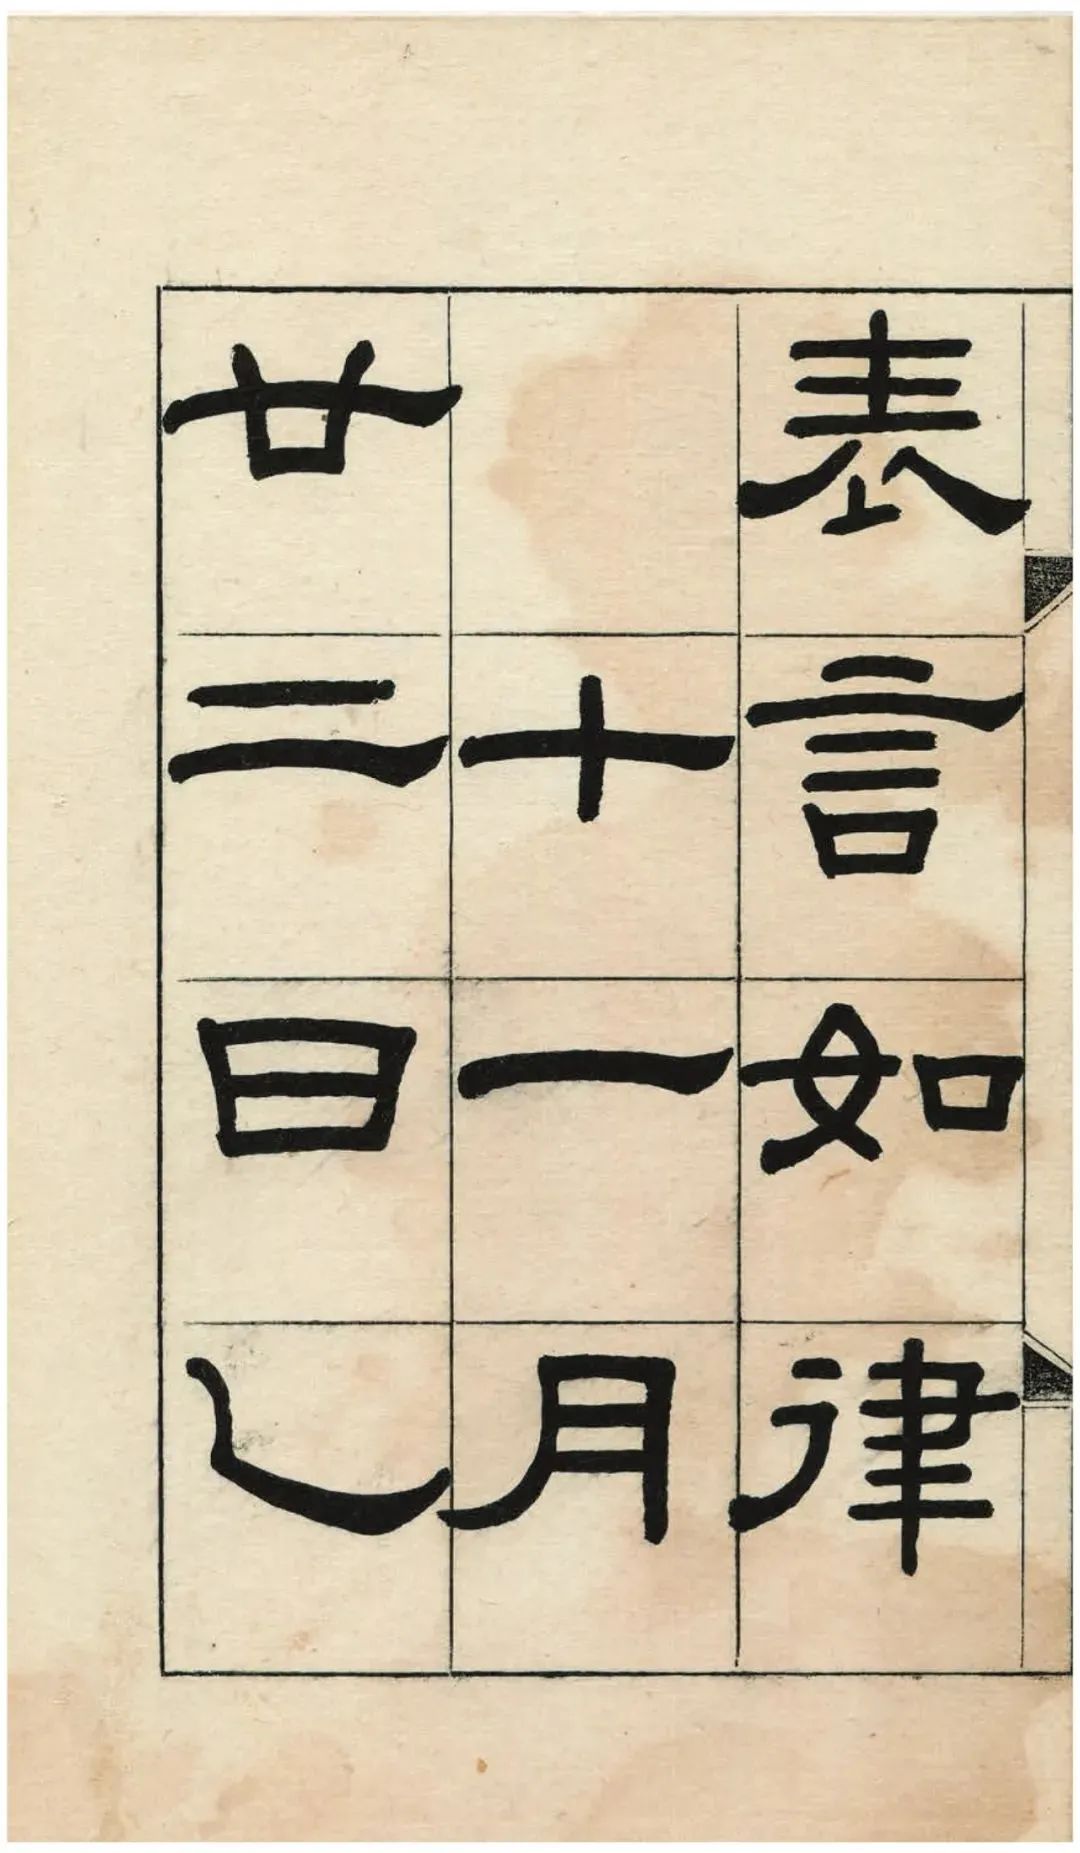 表言如律
十一月
廿二日乙